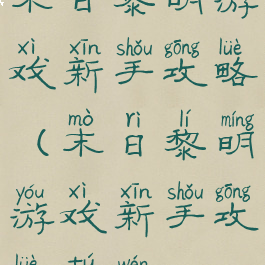 末日黎明游
xì xīn shǒu gōng lüè
戏新手攻略
mò rì lí míng
(末日黎明
yóu xì xīn shǒu gōng
游戏新手攻
lüè tú wén